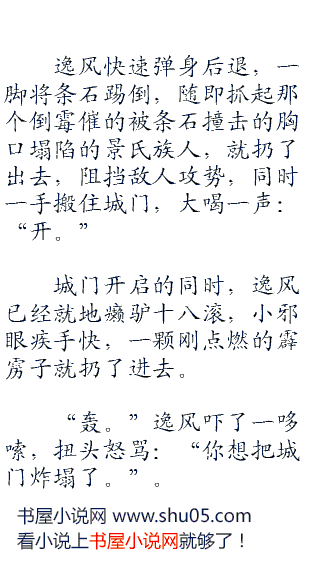 逸风快速弹身后退，一
脚将条石踢倒，随即抓起那
个倒霉催的被条石撞击的胸
口塌陷的景氏族人，就扔了
出去，阻挡敌人攻势，同时
一手搬住城门，大喝一声：
“开。”
城门开启的同时，逸风
已经就地癞驴十八滚，小邪
眼疾手快，一颗刚点燃的霹
雳子就扔了进去。
“轰。”逸风吓了一哆
嗦，扭头怒骂：“你想把城
门炸塌了。”。
书屋小说网 www.shu05.com
看小说上书屋小说网就够了！